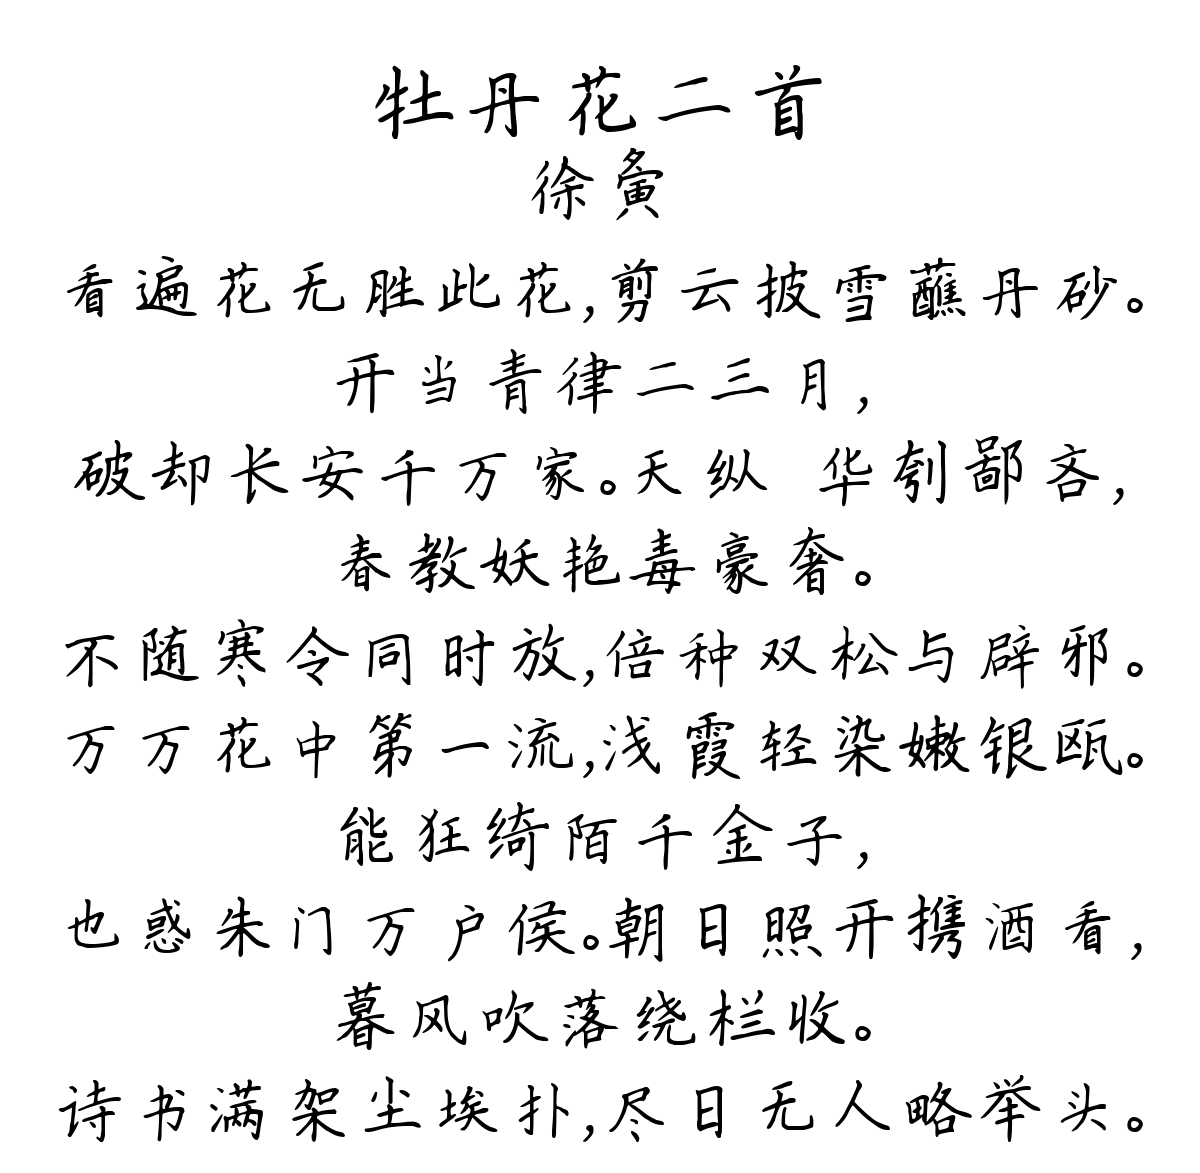 牡丹花二首
徐夤
看遍花无胜此花,剪云披雪蘸丹砂。
开当青律二三月,
破却长安千万家。天纵 华刳鄙吝,
春教妖艳毒豪奢。
不随寒令同时放,倍种双松与辟邪。
万万花中第一流,浅霞轻染嫩银瓯。
能狂绮陌千金子,
也惑朱门万户侯。朝日照开携酒看,
暮风吹落绕栏收。
诗书满架尘埃扑,尽日无人略举头。